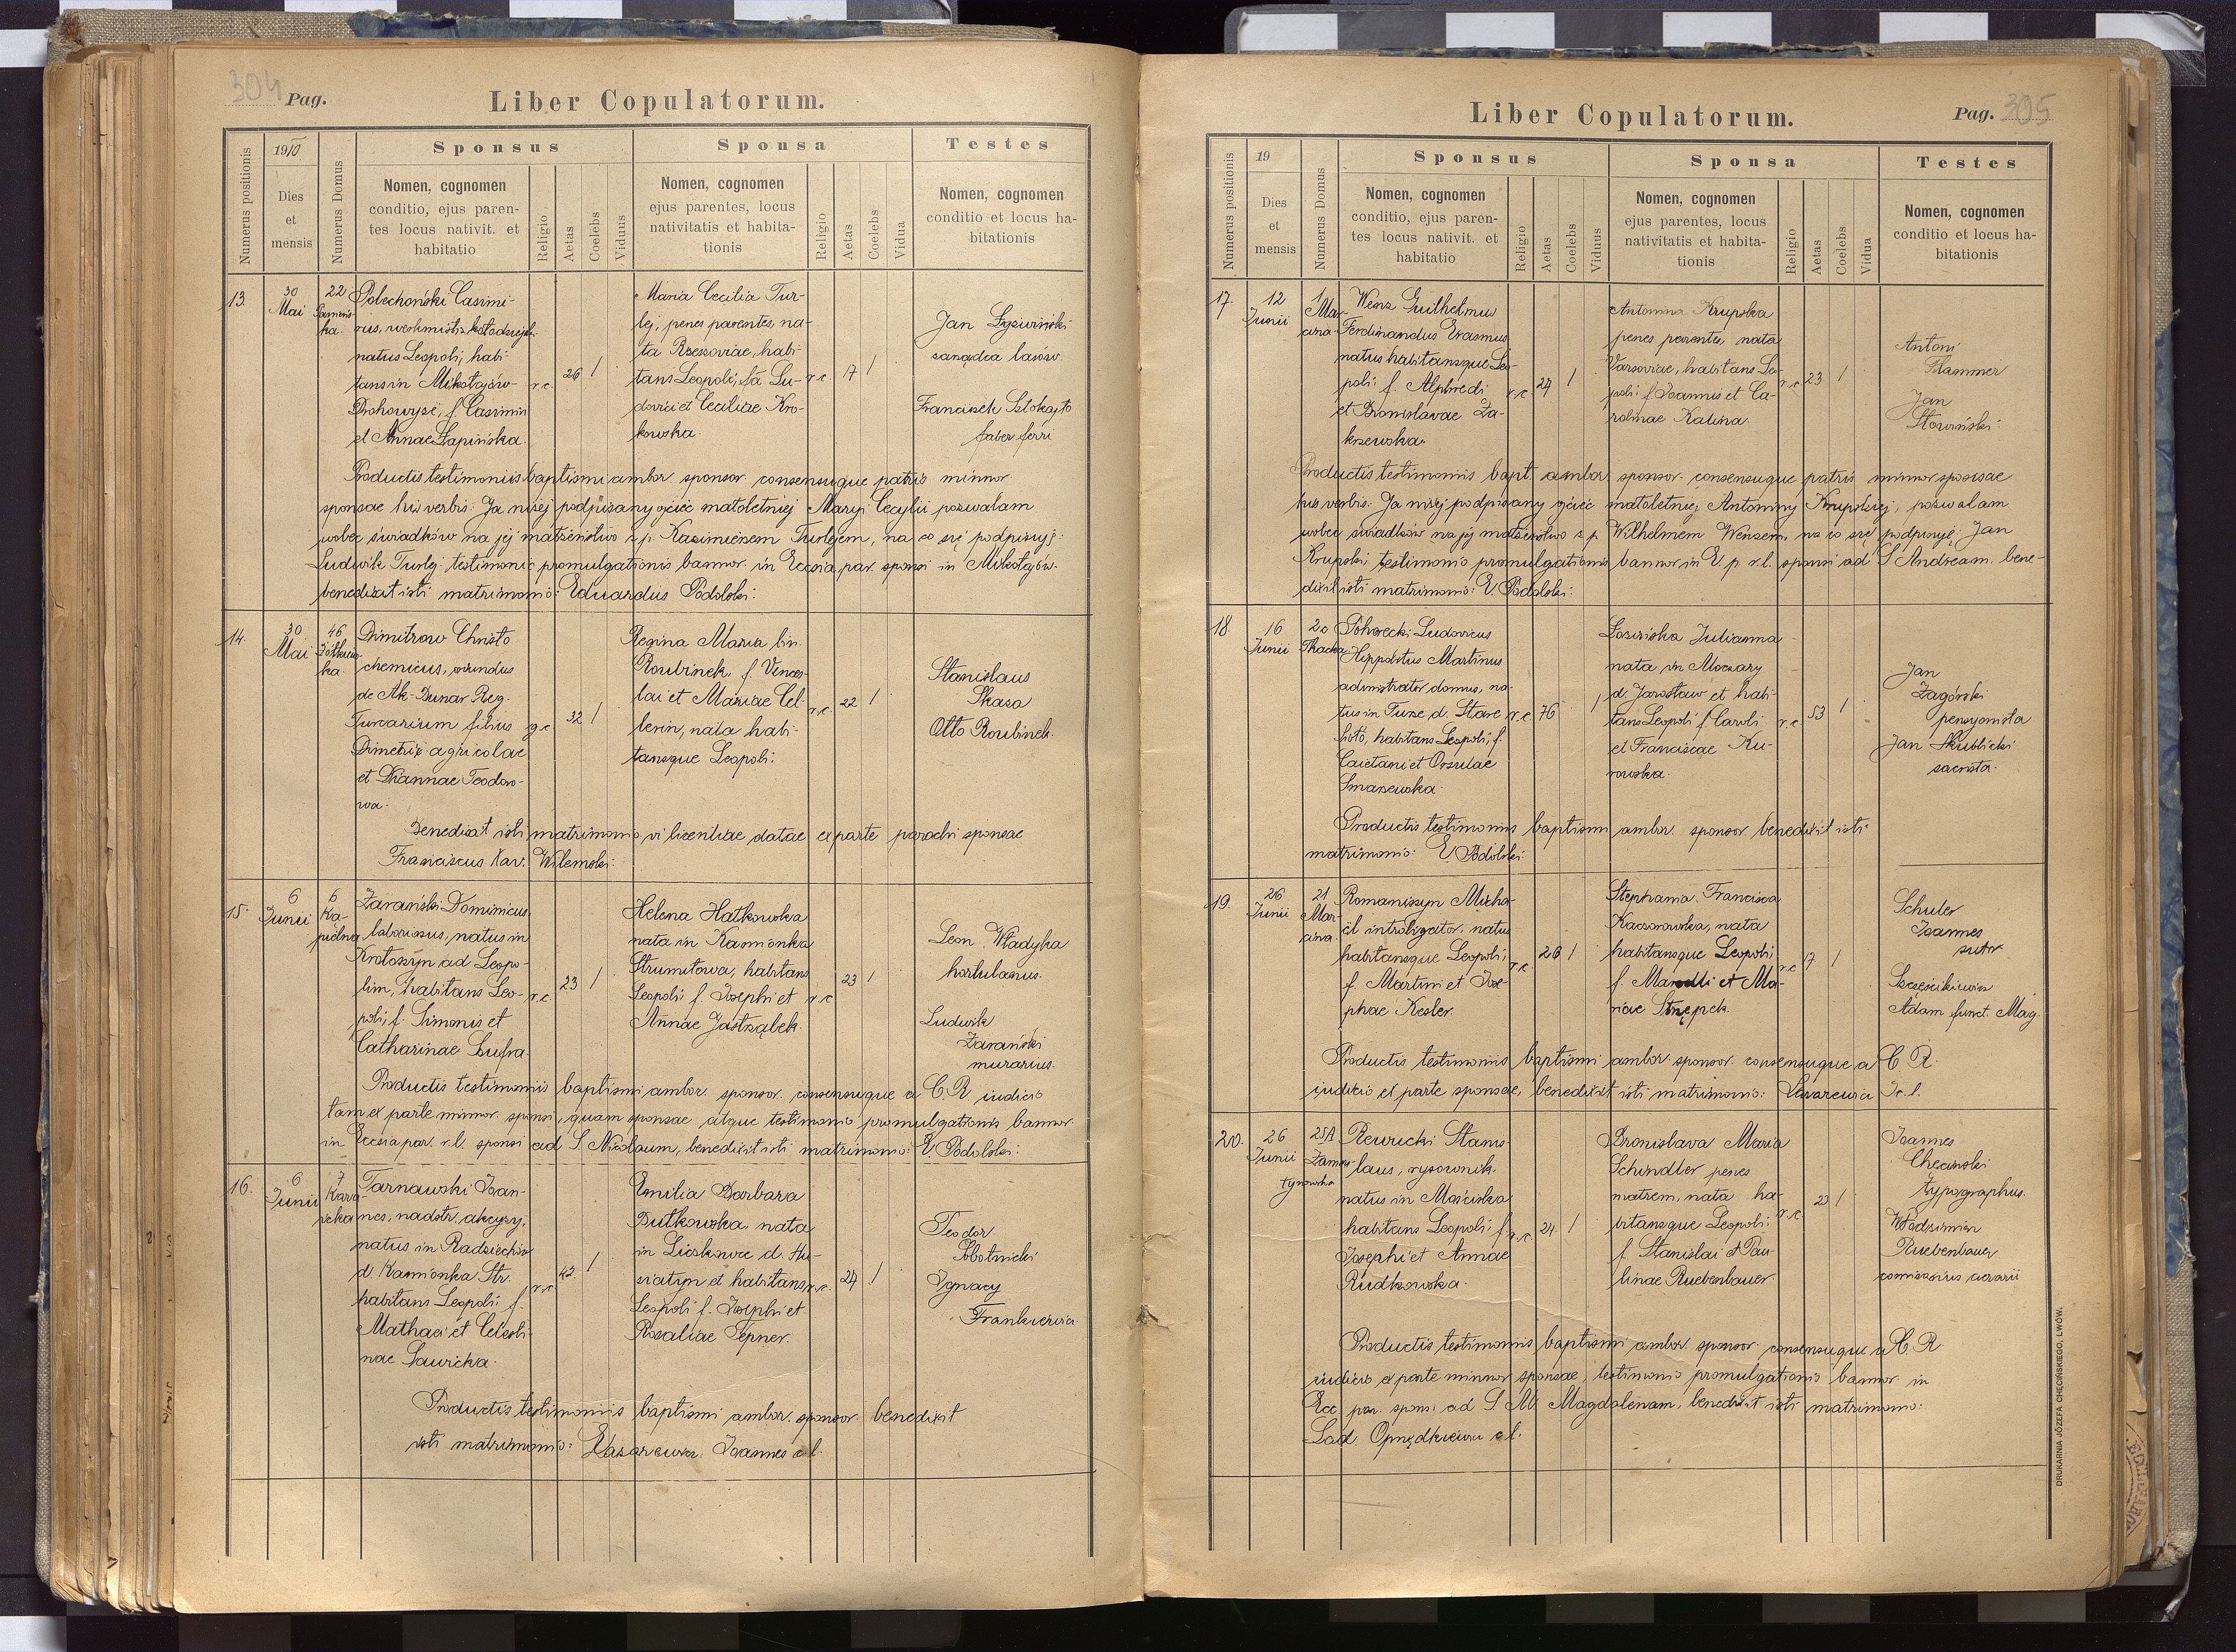 304 Pag.
Liber Copulatorum.
Numerus positionis
1910
Dies et mensis
Numerus Domus
Sponsus
Nomen, cognomen
conditio, ejus paren-
tes locus nativit. et
habitatio
Religio
Aetas
Coelebs
Viduus
Sponsa
Nomen, cognomen
ejus parentes, locus
nativitatis et habita-
tionis
Religio
Aetas
Coelebs
Vidua
Testes
Nomen, cognomen
conditio et locus ha-
bitationis
13.
30
Mai
22
ka.
Polechoński Casimi-
rus,
natus Leopoli, habi-
tans in Mikołajów-
Drohowyże, f. Casimiri
et Annae Łapińska.
r.c.
26
1
Maria Cecilia Tur-
lej, penes parentes, na-
ta Rzeszoviae, habi-
tans Leopoli, fa Lu-
dovici et Ceciliae Kro-
kowska.
r.c.
17
1
Jan
zarządca lasów.
Franciszek
faber ferri
Productis testimoniis baptismi ambor. sponsor. consensuque patris minnor
sponsae his verbis: Ja niżej podpisany ojciec małoletniej Maryi Cecylii pozwalam
wobec świadków na jej małżeństwo z p. Kazimierzem Turlejem, na co się podpisuję:
Ludwik Turlej. testimonio promulgationis bannor. in Eccsia par. sponsi in Mikołajów.
benedixit isti matrimonio: Eduardus Podolski:
14.
30
Mai
46
Żółkiew-
ka.
Dimitrow Christo
chemicus, oriundus
de Ak-Bunar Reg.
filius
Dimetrii agricolae
et Teodoro-
wa.
g.c.
32
1
Regina Maria bin.
Roubinek, f. Vences-
lai et Mariae Cel-
lerin, nata habi-
tansque Leopoli:
r.c.
22
1
Stanislaus
Skaza
Otto Roubinek.
Benedixit isti matrimonio, vi licentiae datae ex parte parochi sponsae
Franciscus Xav. Wilemski:
15.
6
Junii
6
Ka-
pielna
Żarański Dominicus
laboriosus, natus in
Krotoszyn ad Leopo-
lim, habitans Leo-
poli, f. Simonis et
Catharinae Lufra.
r.c.
23
1
Helena Hatkowska
nata in Kamionka
Strumiłowa, habitans
Leopoli f. Josephi et
Annae Jastrząbek.
r.c
23
1
Leon Władyka
hortulanus.
Ludwik
Żarański
murarius.
Productis testimoniis baptismi ambor. sponsor. consensuque a C. R. iudicio
tam ex parte minnor. sponsi, quam sponsae atque testimonio promulgationis bannor
in Eccsia par. r.l. sponsi ad S. Nicolaum, benedixit isti matrimonio: E. Podolski:
16.
6
Junii
7
Tarnawski Joan-
nes, nadstr. akcyzy,
natus in Radziechów
d. Kamionka Str.
habitans Leopoli f.
Mathaei et Celesti-
nae Sawicka.
r.c
42.
1
Emilia Barbara
Butkowska, nata
in Liczkowce d. Hu-
siatyn et habitans
Leopoli f. Josephi et
Rosaliae Tepner.
r.c.
24
1
Teodor
Sobotnicki
Ignacy
Frankiewicz
Productis testimoniis baptismi ambor. sponsor. benedixit
isti matrimonio: Joannes c.l.
Liber Copulatorum.
Pag. 305
Numerus positionis
19
Dies et mensis
Numerus Domus
Sponsus
Nomen, cognomen
conditio, ejus paren-
tes locus nativit. et
habitatio
Religio
Aetas
Coelebs
Viduus
Sponsa
Nomen, cognomen
ejus parentes, locus
nativitatis et habita-
tionis
Religio
Aetas
Coelebs
Vidua
Testes
Nomen, cognomen
conditio et locus ha-
bitationis
17.
12
Junii
1
Mar-
cina
Wenz Guilhelmus
Ferdinandus Erasmus
natus habitansque Leo-
poli f. Alphredi
et Bronislavae Za-
krzewska.
r.c.
24
1
Antonina Krupska
penes parentes, nata
Varsoviae, habitans Leo-
poli f. Joannis et Ca-
rolinae Kalina.
r.c
23
1
Antoni
Flammer
Jan
Słowiński.
Productis testimoniis bapt. ambor. sponsor. consensuque patris minnor sponsae
his verbis: Ja niżej podpisany ojciec małoletniej Antoniny Krupskiej, pozwalam
wobec świadków na jej małżeństwo z p. Wilhelmem Wenzem, na co się podpisuję: Jan
Krupski, testimonio promulgationis bannor in E. p. r.l. sponsi ad S Andream. bene-
dixit isti matrimonio: E. Podolski:
18.
16
Junii
20
Tkacka
Pohorecki Ludovicus
Hippolitus Martinus
administrator domus, na-
tus in Turze d. Stare
, habitans Leopoli, f.
Caietani et Orsulae
Smarzewska.
r.c
76
1
Łozińska Julianna
nata in Moczary
d. Jarosław et habi-
tans Leopoli f. Caroli
et Franciscae Ku-
rowska.
r.c
53
1
Jan
Zagórski
pensyonista
Jan Skublicki
sacrista.
Productis testimoniis baptismi ambor. sponsor benedixit isti
matrimonio: E. Podolski:
19.
26
Junii
21
Mar-
cina
Romaniszyn Micha-
ël introligator, natus
habitansque Leopoli,
f. Martini et Jose-
phae Kesler.
r.c
26
1
Stephania Francisca
Kaczorowska, nata
habitansque Leopoli,
f. et Ma-
riae Strzępek.
r.c
17
1
Schuler
Joannes
sutor
Szcześcikiewicz
Adam funct. Mag.
Productis testimoniis baptismi ambor. sponsor. consensuque a C. R.
iudicio ex parte sponsae, benedixit isti matrimonio: Jo.l.
20.
26
Junii
25A
Zamar-
tynowska
Rewucki Stanis-
laus, rysownik,
natus in Mościska
habitans Leopoli, f.
Josephi et Annae
Rudkowska.
r.c
24.
1
Bronislava Maria
Schindler penes
matrem, nata ha-
bitansque Leopoli:
f. Stanislai et Pau-
linae Ruebenbauer.
r.c
23
1
Joannes
Checinski
typographus.
Włodzimierz
Ruebenbauer
comissarius aerarii
Productis testimoniis baptismi ambor. sponsor. consensuque a C. R
iudicio ex parte minnor sponsae, testimonio promulgationis bannor in
Ecc. par. sponsi ad S. M. Magdalenam, benedixit isti matrimonio:
Lad. c.l.
DRUKARNIA JÓZEFA CHĘCIŃSKIEGO, LWÓW.